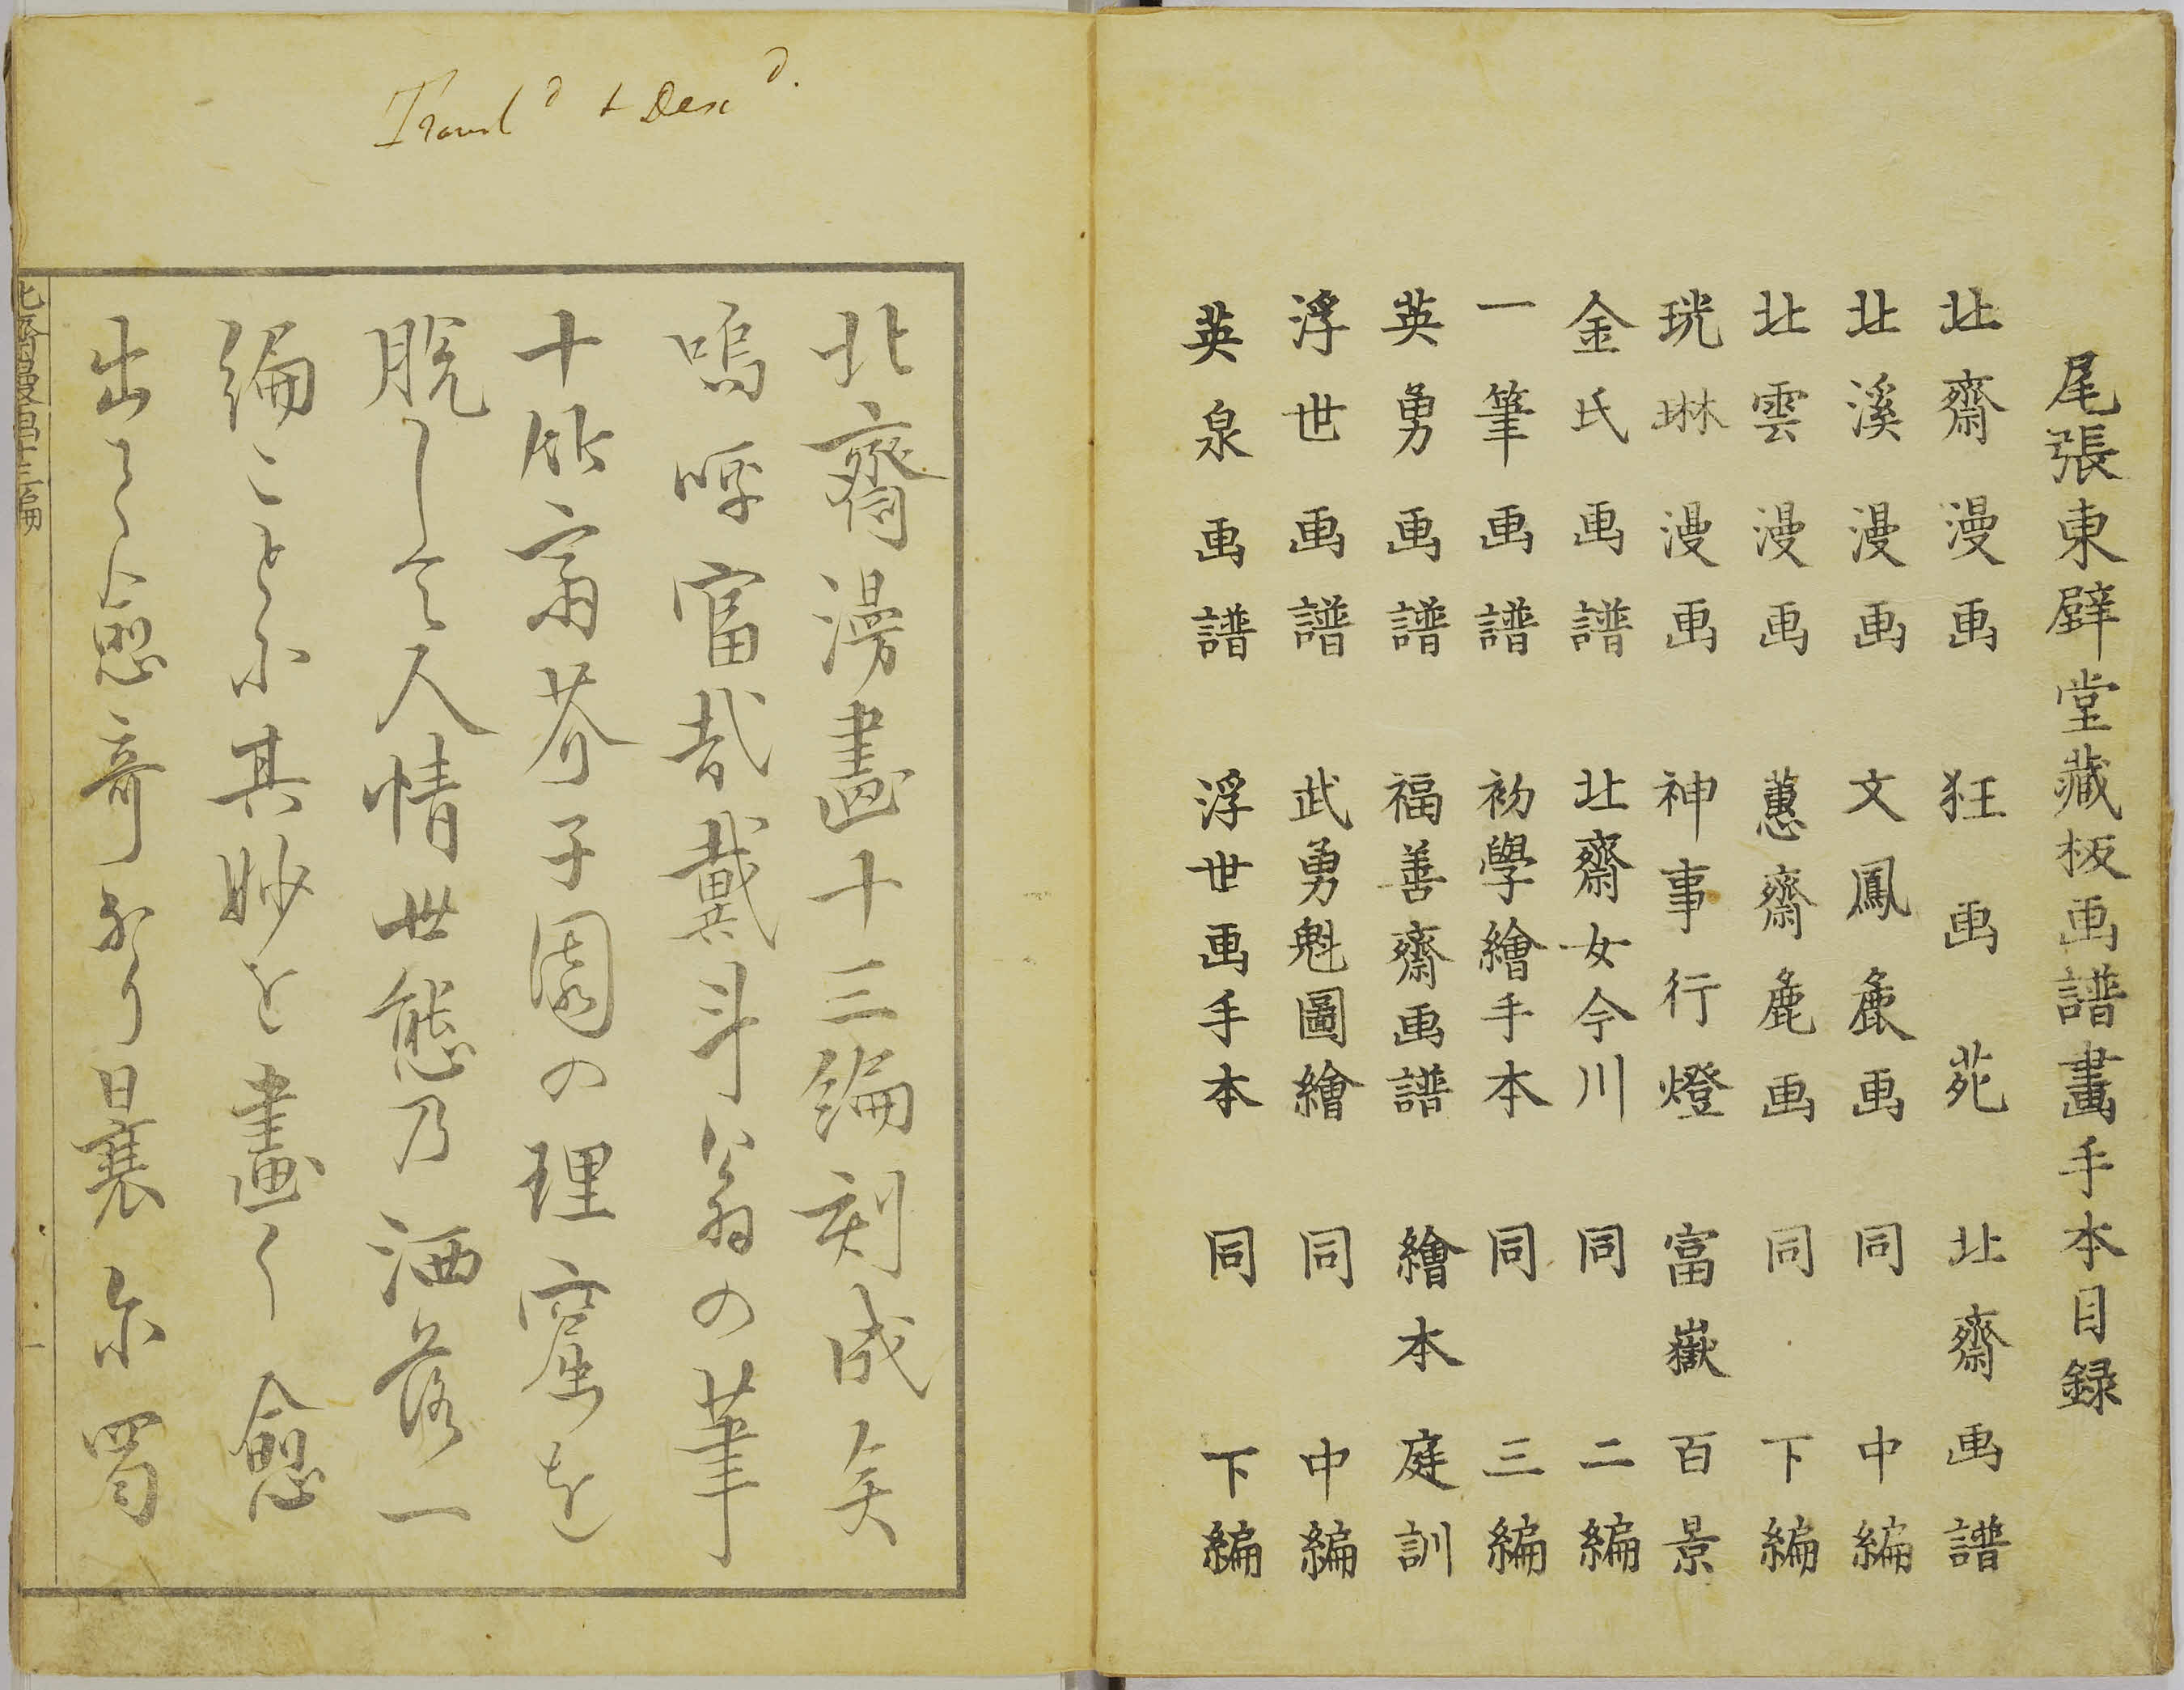 尾張東壁堂藏板画譜畫手本目録
北齋漫画 狂画苑 北齋画譜
北溪漫画 文鳳麁画 同 中編
北雲漫画 蕙齋麁画 同 下編
珖琳漫画 神事行燈 富嶽百景
金氏画譜 北齋女今川 同 二編
一筆画譜 初學繪手本 同 三編
英勇画譜 福善齋画譜 繪本庭訓
浮世画譜 武勇魁圖繪 同 中編
英泉画譜 浮世画手本 同 下編
Transl^d & Desc^d.
北齋漫畫十三編刻成矣
嗚呼富哉戴斗翁の筆
十竹齋芥子園の理窟を
脱して人情世態乃洒落一
編ことに其妙を畫く愈
出て愈奇なり曩尓蜀
北斎漫画十三編